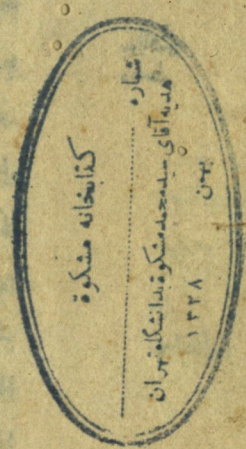 کتابخانه مشکوة
شماره
هدیه آقای سید محمد مشکوة بدانشگاه تهران
بهمن
۱۳۲۸